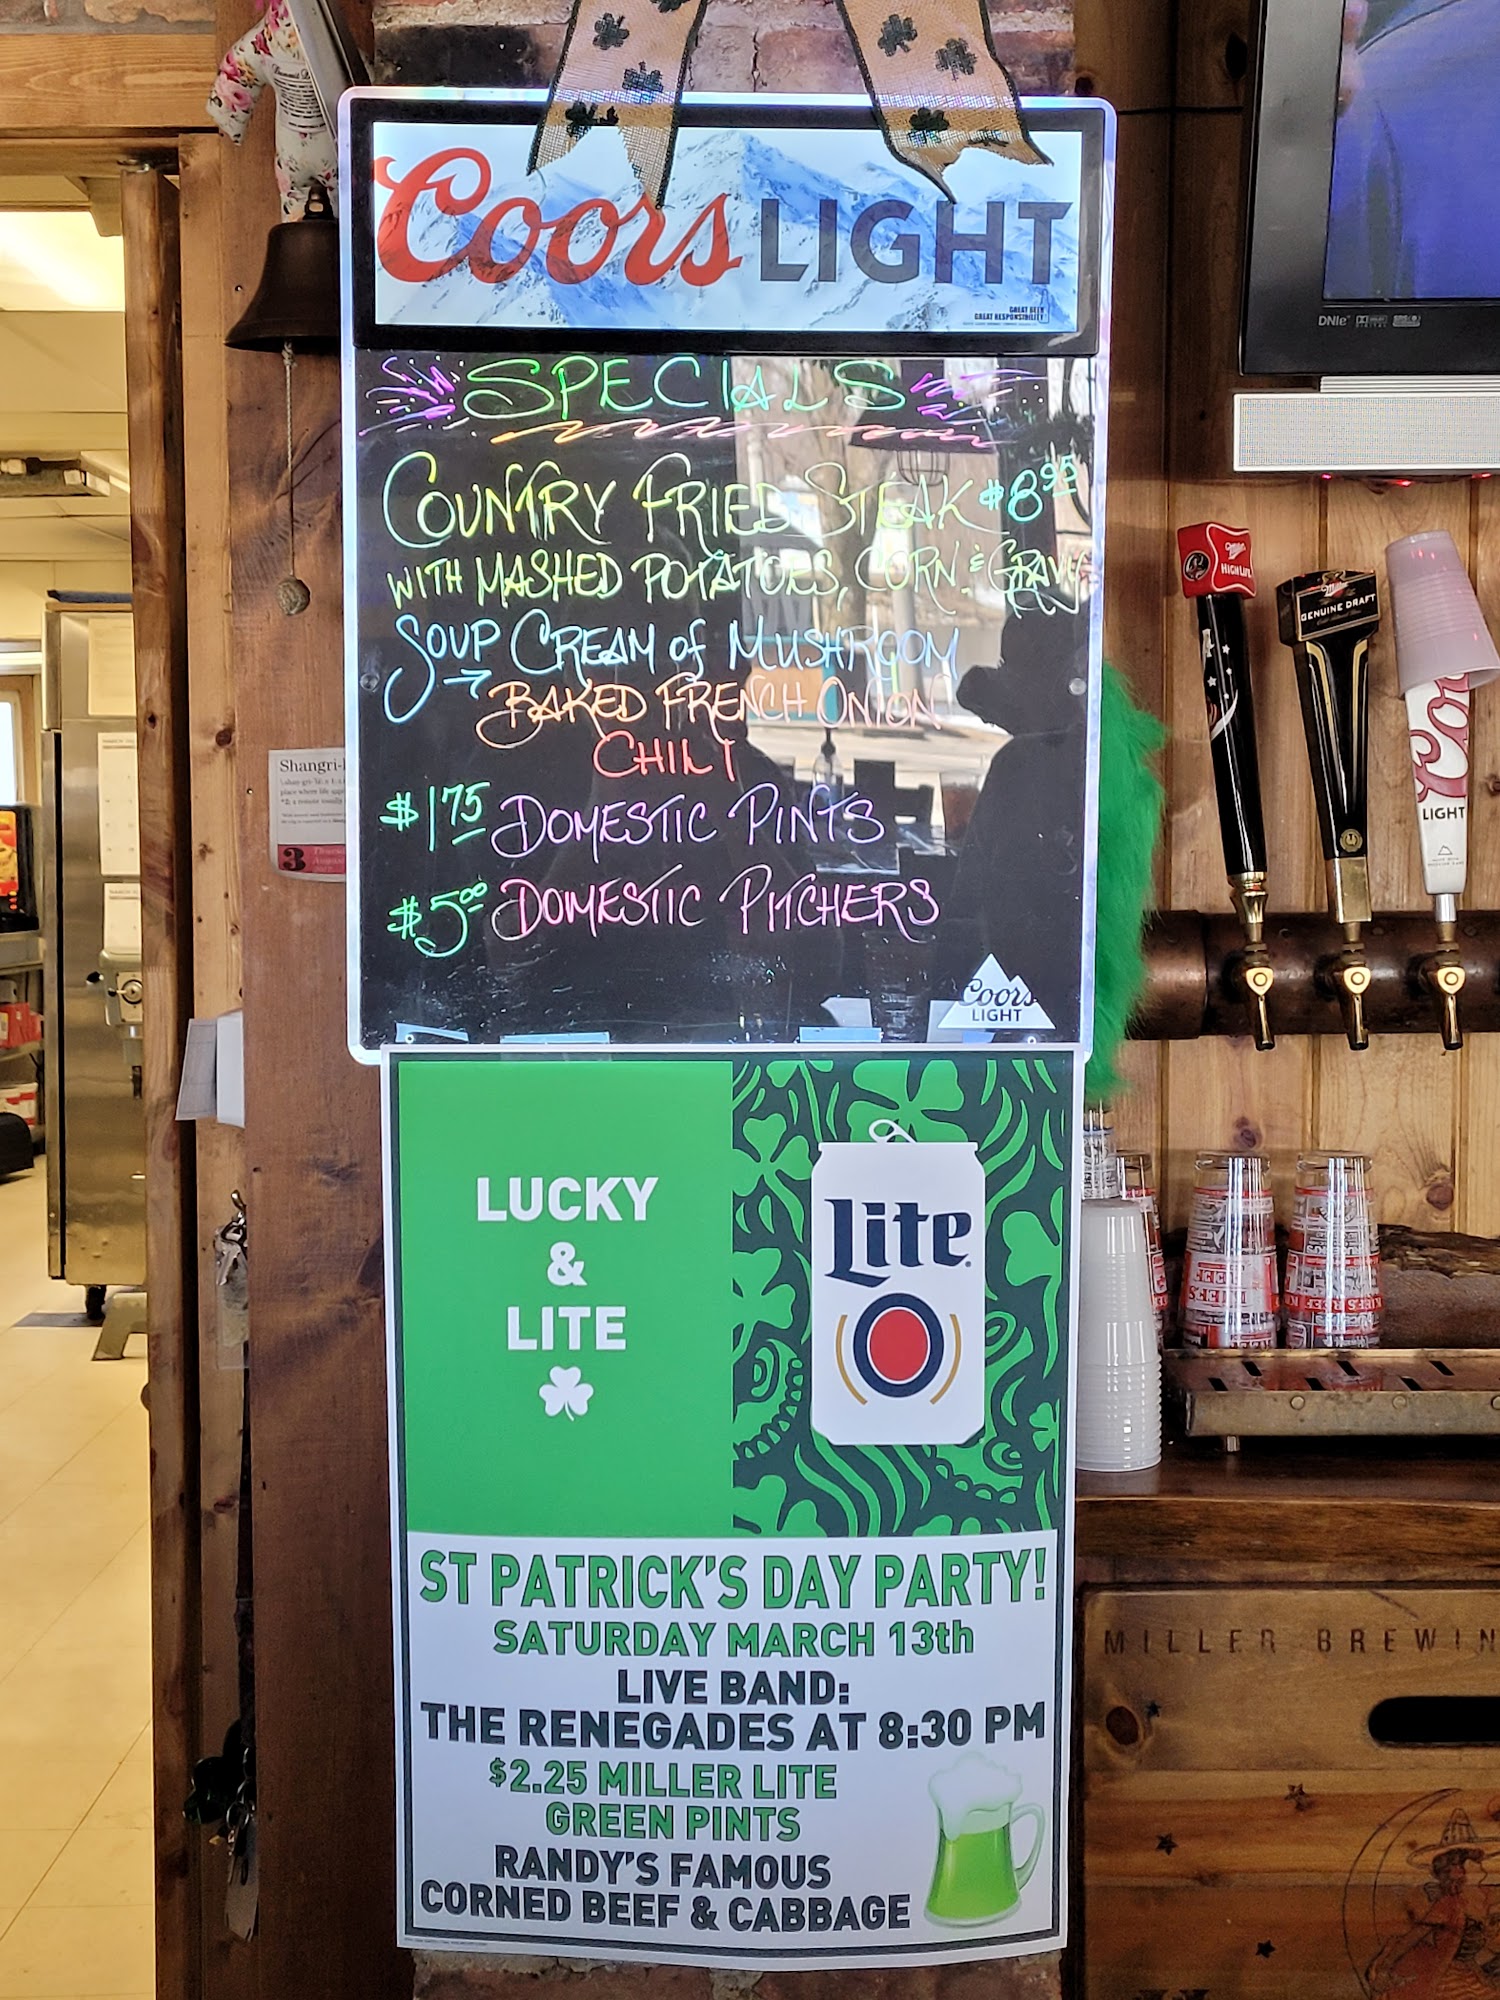 Coors LIGHT
GREAT BEER
GREAT RESPONSIBILITY
SPECIALS
COUNTRY FRIED STEAK $8.95
WITH MASHED POTATOES, CORN & GRAVY
SOUP → CREAM OF MUSHROOM
BAKED FRENCH ONION
CHILI
$1.75 DOMESTIC PINTS
$5.00 DOMESTIC PITCHERS
Coors
LIGHT
LUCKY
&
LITE
Lite
ST PATRICK'S DAY PARTY!
SATURDAY MARCH 13th
LIVE BAND:
THE RENEGADES AT 8:30 PM
$2.25 MILLER LITE
GREEN PINTS
RANDY'S FAMOUS
CORNED BEEF & CABBAGE
Shangri-
3
DNIe
HIGH LIFE
Miller
GENUINE DRAFT
LIGHT
MILLER BREWIN